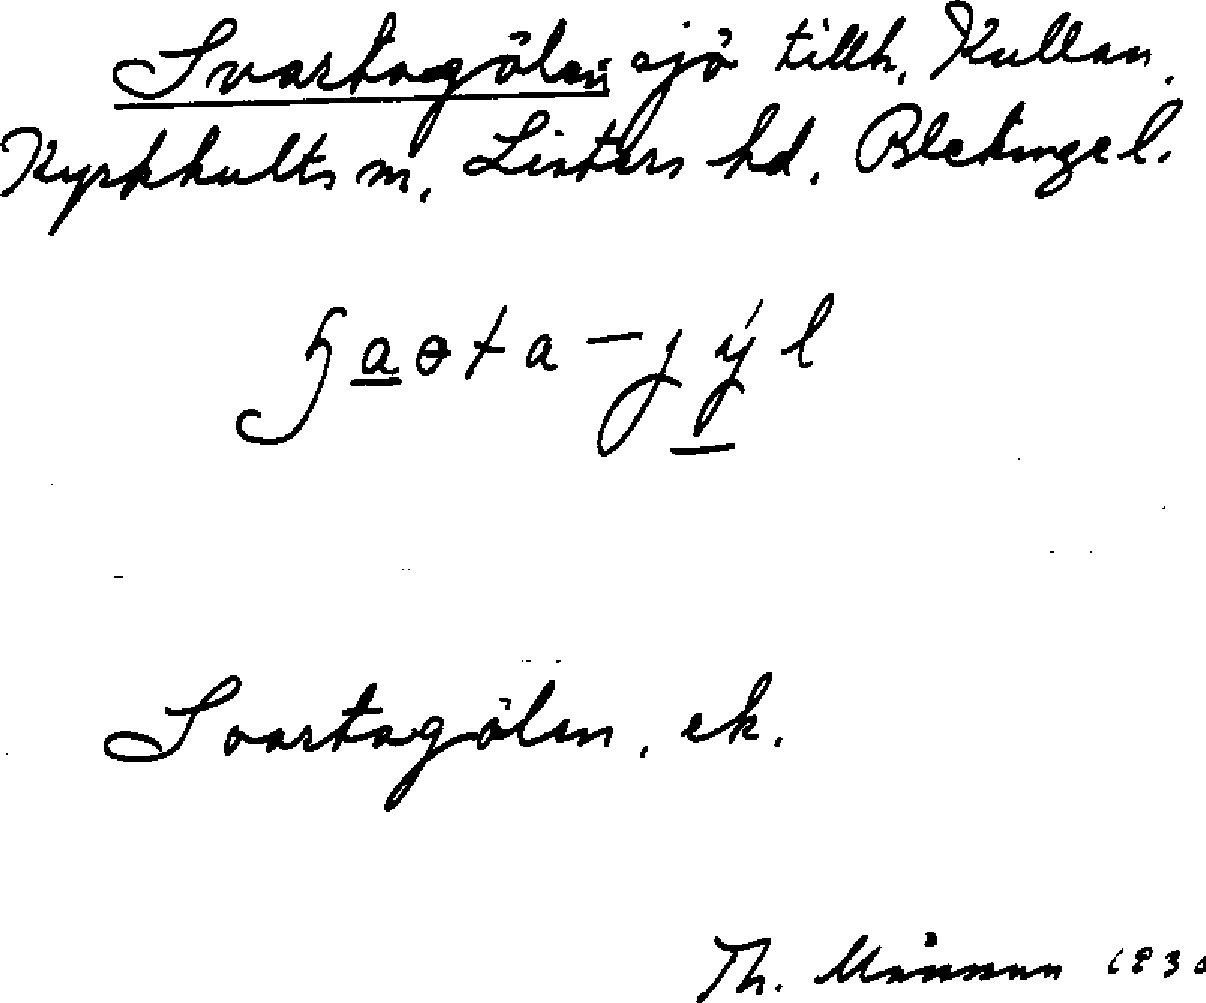 Svartagölen sjö tillh. Kullan,
Kyrkhults sn, Listers hd, Blekinge l.
Svartagölen, ek.
Th. Månsson